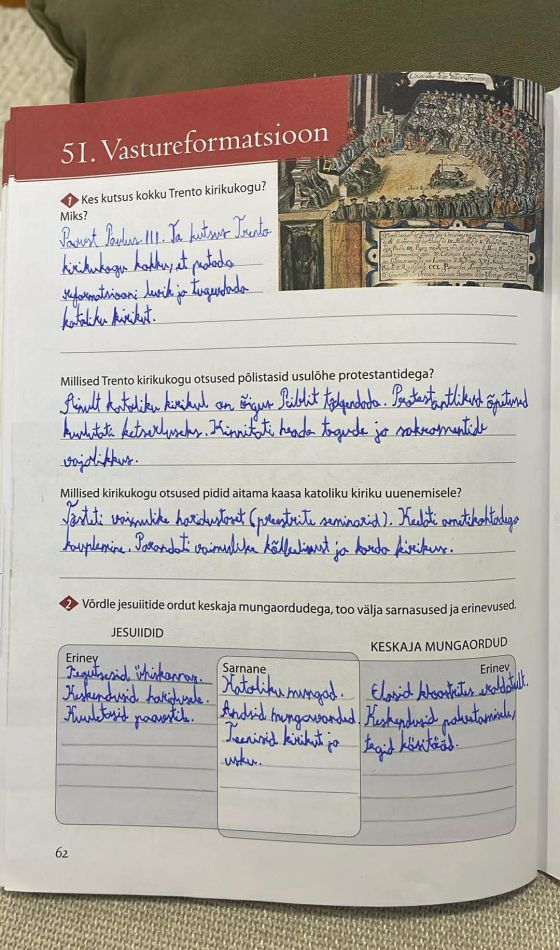 51. Vastureformatsioon
1 Kes kutsus kokku Trento kirikukogu?
Miks?
Paavst Paulus III. Ta kutsus Trento
kirikukogu kokku, et peatada
reformatsiooni levik ja tugevdada
katoliku kirikut.
Millised Trento kirikukogu otsused põlistasid usulõhe protestantidega?
Ainult katoliku kirikul on õigus Piiblit tõlgendada. Protestantlikud õpetused
kuulutati ketserluseks. Kinnitati heade tegude ja sakramentide
vajalikkus.
Millised kirikukogu otsused pidid aitama kaasa katoliku kiriku uuenemisele?
Tõsteti vaimulike haridustaset (preestrite seminarid). Keelati ametikohtadega
kauplemine. Parandati vaimulike kõlblust ja korda kirikus.
2 Võrdle jesuiitide ordut keskaja mungaordudega, too välja sarnasused ja erinevused.
JESUIIDID
KESKAJA MUNGAORDUD
Erinev
Tegutsesid ühiskonnas.
Keskendusid haridusele.
Kuuletusid paavstile.
Sarnane
Katoliku mungad.
Andsid mungavanded.
Teenisid kirikut ja
usku.
Erinev
Elasid kloostrites eraldatult.
Keskendusid palvetamisele,
tegid käsitööd.
62